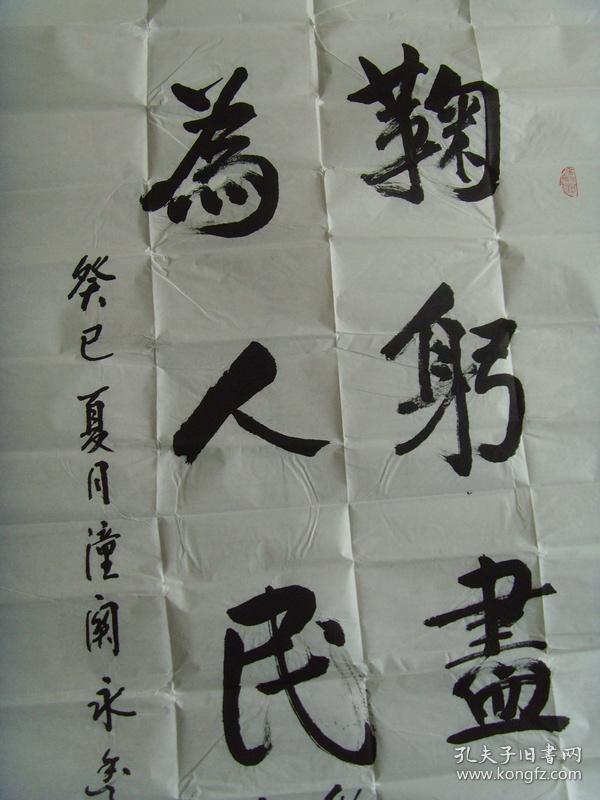 鞠躬盡
為人民
癸巳夏月潼關永
孔夫子旧書网
www.kongfz.com